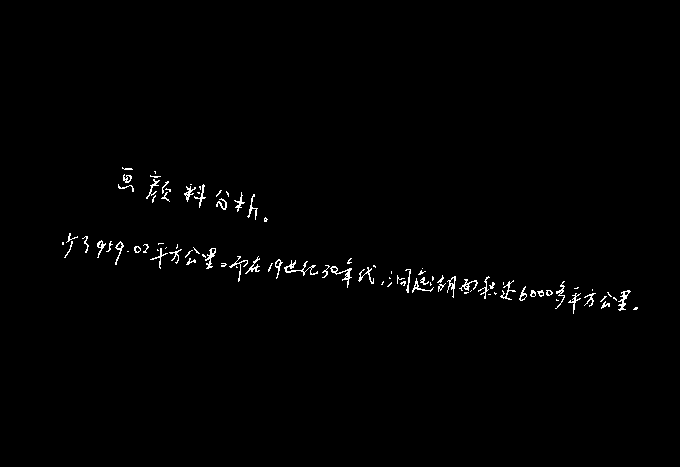 画颜料分析。
少了959.02平方公里。而在19世纪30年代,洞庭湖面积达6000多平方公里。